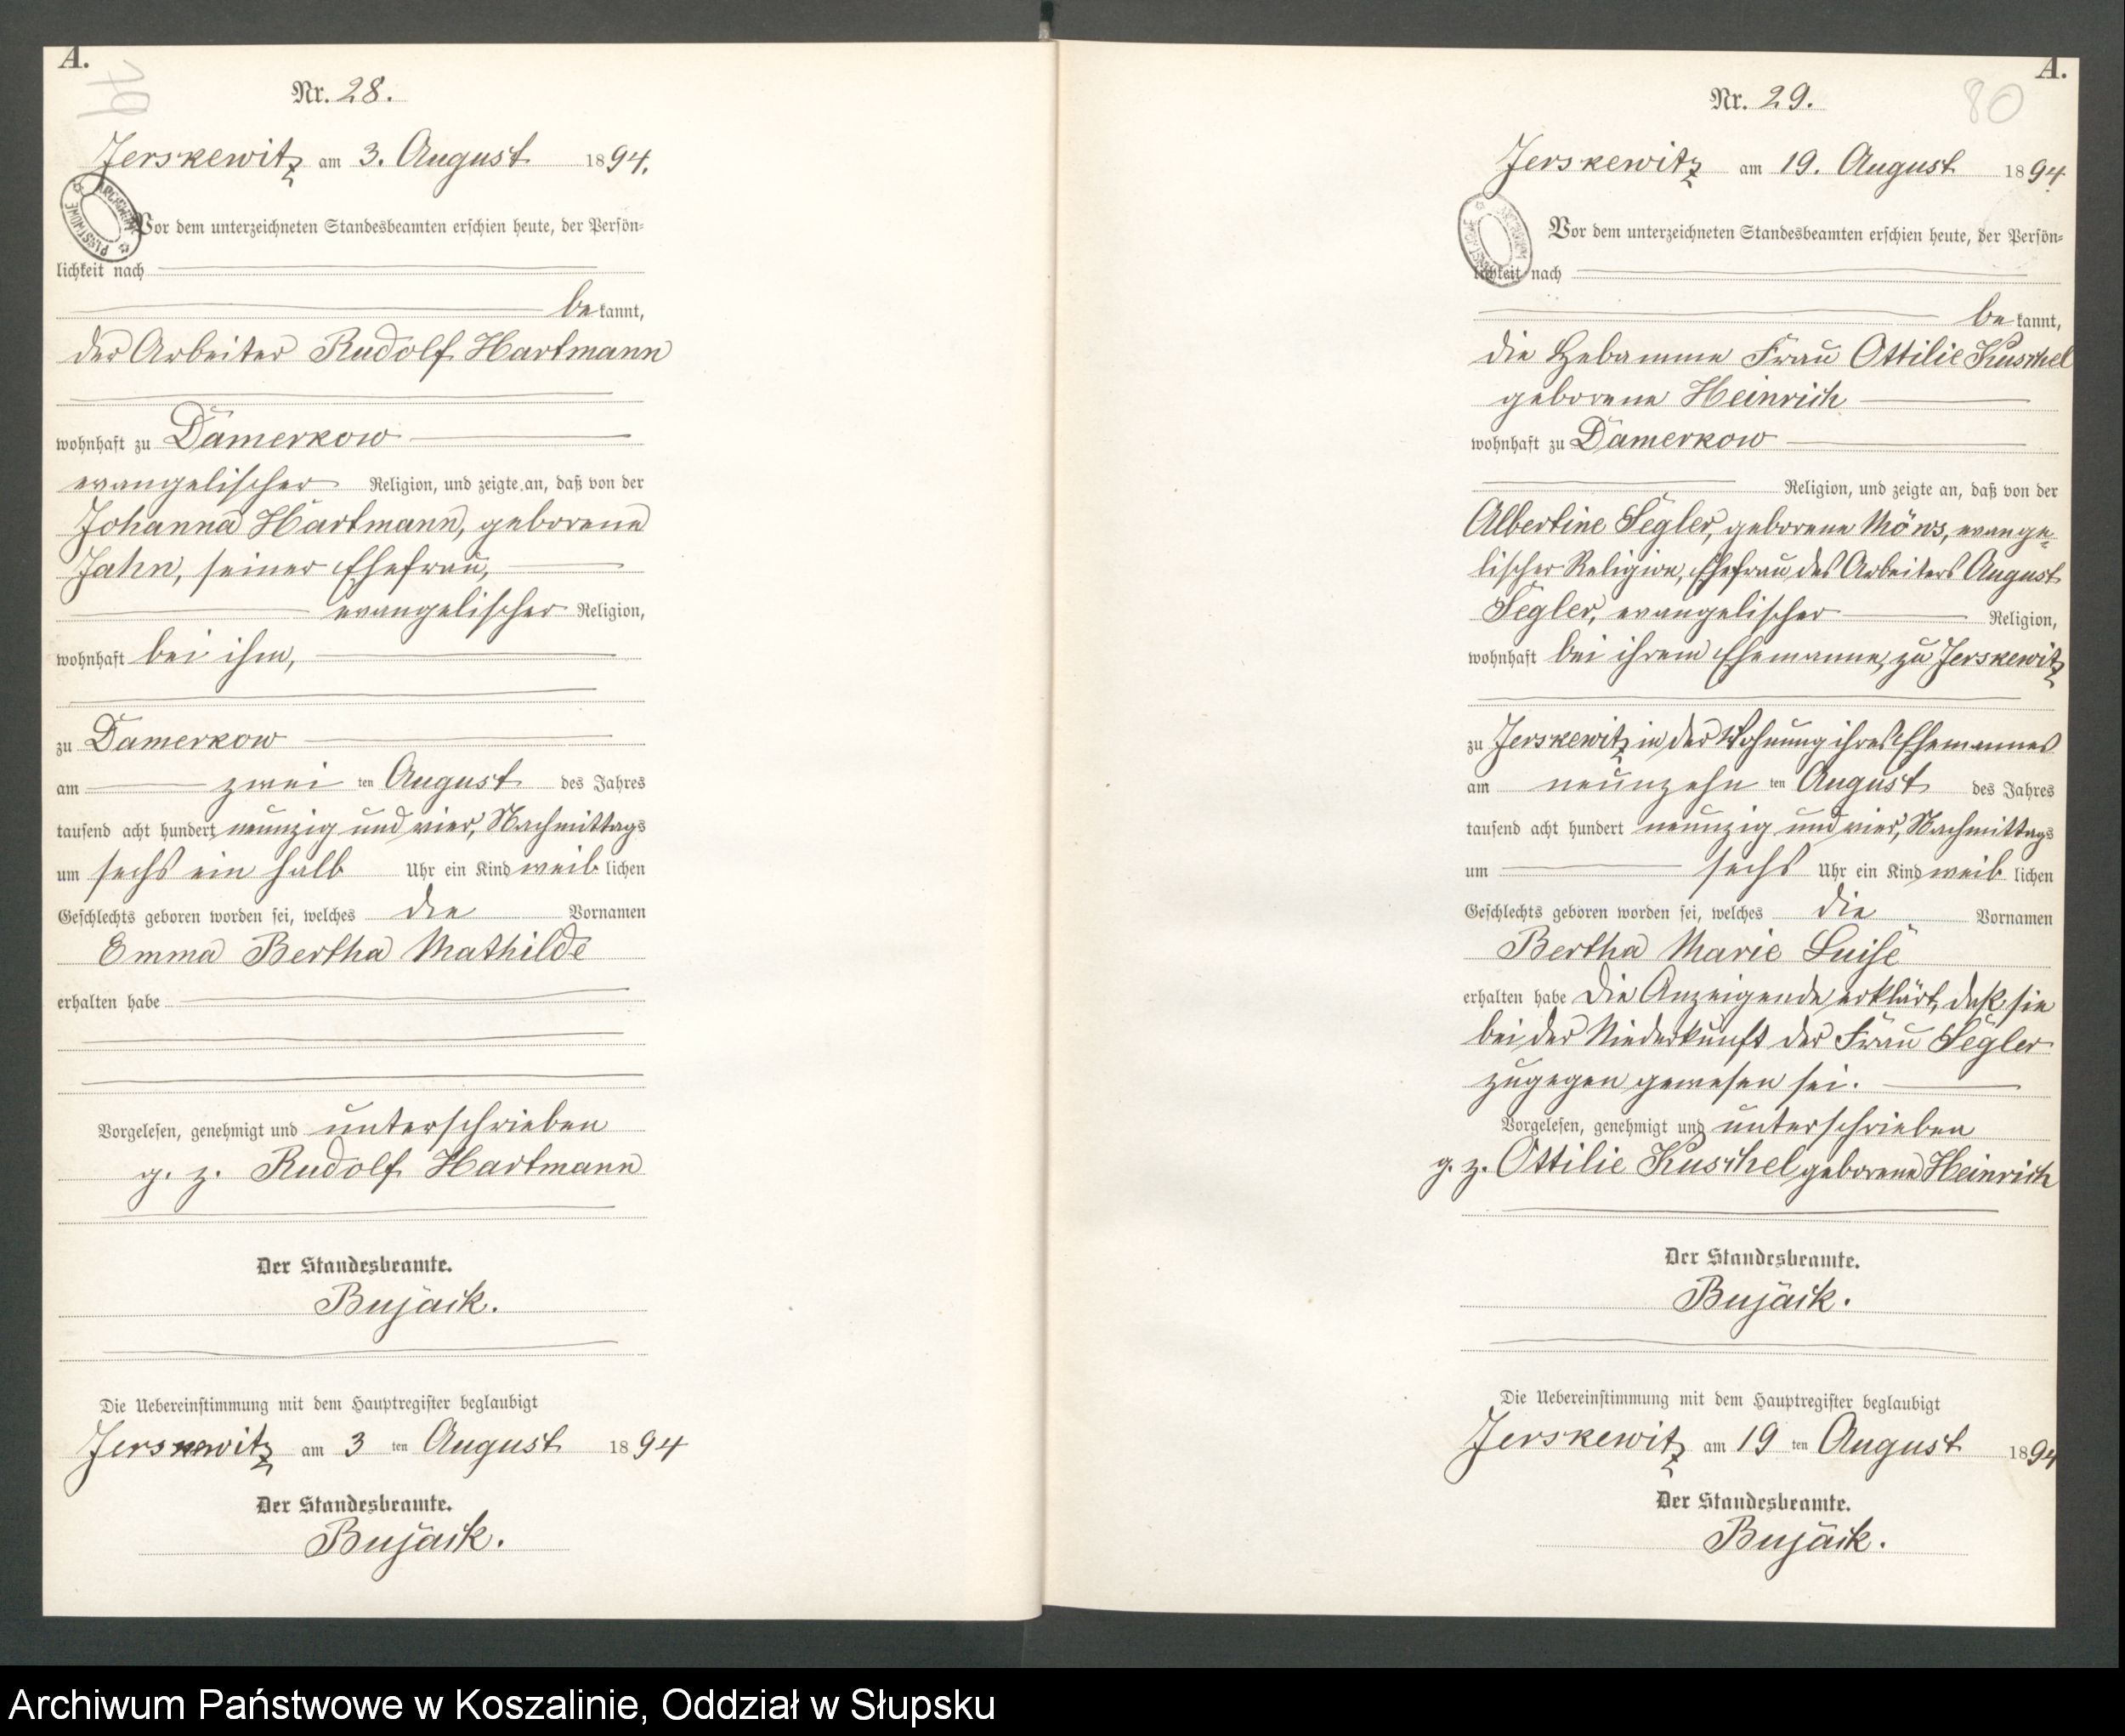 A.
79
Nr. 28.
Jerskewitz am 3. August 1894.
Vor dem unterzeichneten Standesbeamten erschien heute, der Persön-
lichkeit nach
bekannt,
der Arbeiter Rudolf Hartmann
wohnhaft zu Damerkow
evangelischer Religion, und zeigte an, daß von der
Johanna Hartmann, geborene
Jahn, seiner Ehefrau,
evangelischer Religion,
wohnhaft bei ihm,
zu Damerkow
am zwei ten August des Jahres
tausend acht hundert neunzig und vier, Nachmittags
um sechs ein halb Uhr ein Kind weiblichen
Geschlechts geboren worden sei, welches die Vornamen
Emma Bertha Mathilde
erhalten habe
Vorgelesen, genehmigt und unterschrieben
g. z. Rudolf Hartmann
Der Standesbeamte.
Bujack.
Die Uebereinstimmung mit dem Hauptregister beglaubigt
Jerskewitz am 3 ten August 1894
Der Standesbeamte.
Bujack.
A.
80
Nr. 29.
Jerskewitz am 19. August 1894
Vor dem unterzeichneten Standesbeamten erschien heute, der Persön-
lichkeit nach
bekannt,
die Hebamme Frau Ottilie Kuschel
geborene Heinrich
wohnhaft zu Damerkow
Religion, und zeigte an, daß von der
Albertine Segler, geborene Möws, evange-
lischer Religion, Ehefrau des Arbeiters August
Segler, evangelischer Religion,
wohnhaft bei ihrem Ehemanne, zu Jerskewitz
zu Jerskewitz in der Wohnung ihres Ehemannes
am neunzehn ten August des Jahres
tausend acht hundert neunzig und vier, Nachmittags
um sechs Uhr ein Kind weiblichen
Geschlechts geboren worden sei, welches die Vornamen
Bertha Marie Luise
erhalten habe Die Anzeigende erklärt, daß sie
bei der Niederkunft der Frau Segler
zugegen gewesen sei.
Vorgelesen, genehmigt und unterschrieben
g. z. Ottilie Kuschel geborene Heinrich
Der Standesbeamte.
Bujack.
Die Uebereinstimmung mit dem Hauptregister beglaubigt
Jerskewitz am 19 ten August 1894
Der Standesbeamte.
Bujack.
Archiwum Państwowe w Koszalinie, Oddział w Słupsku